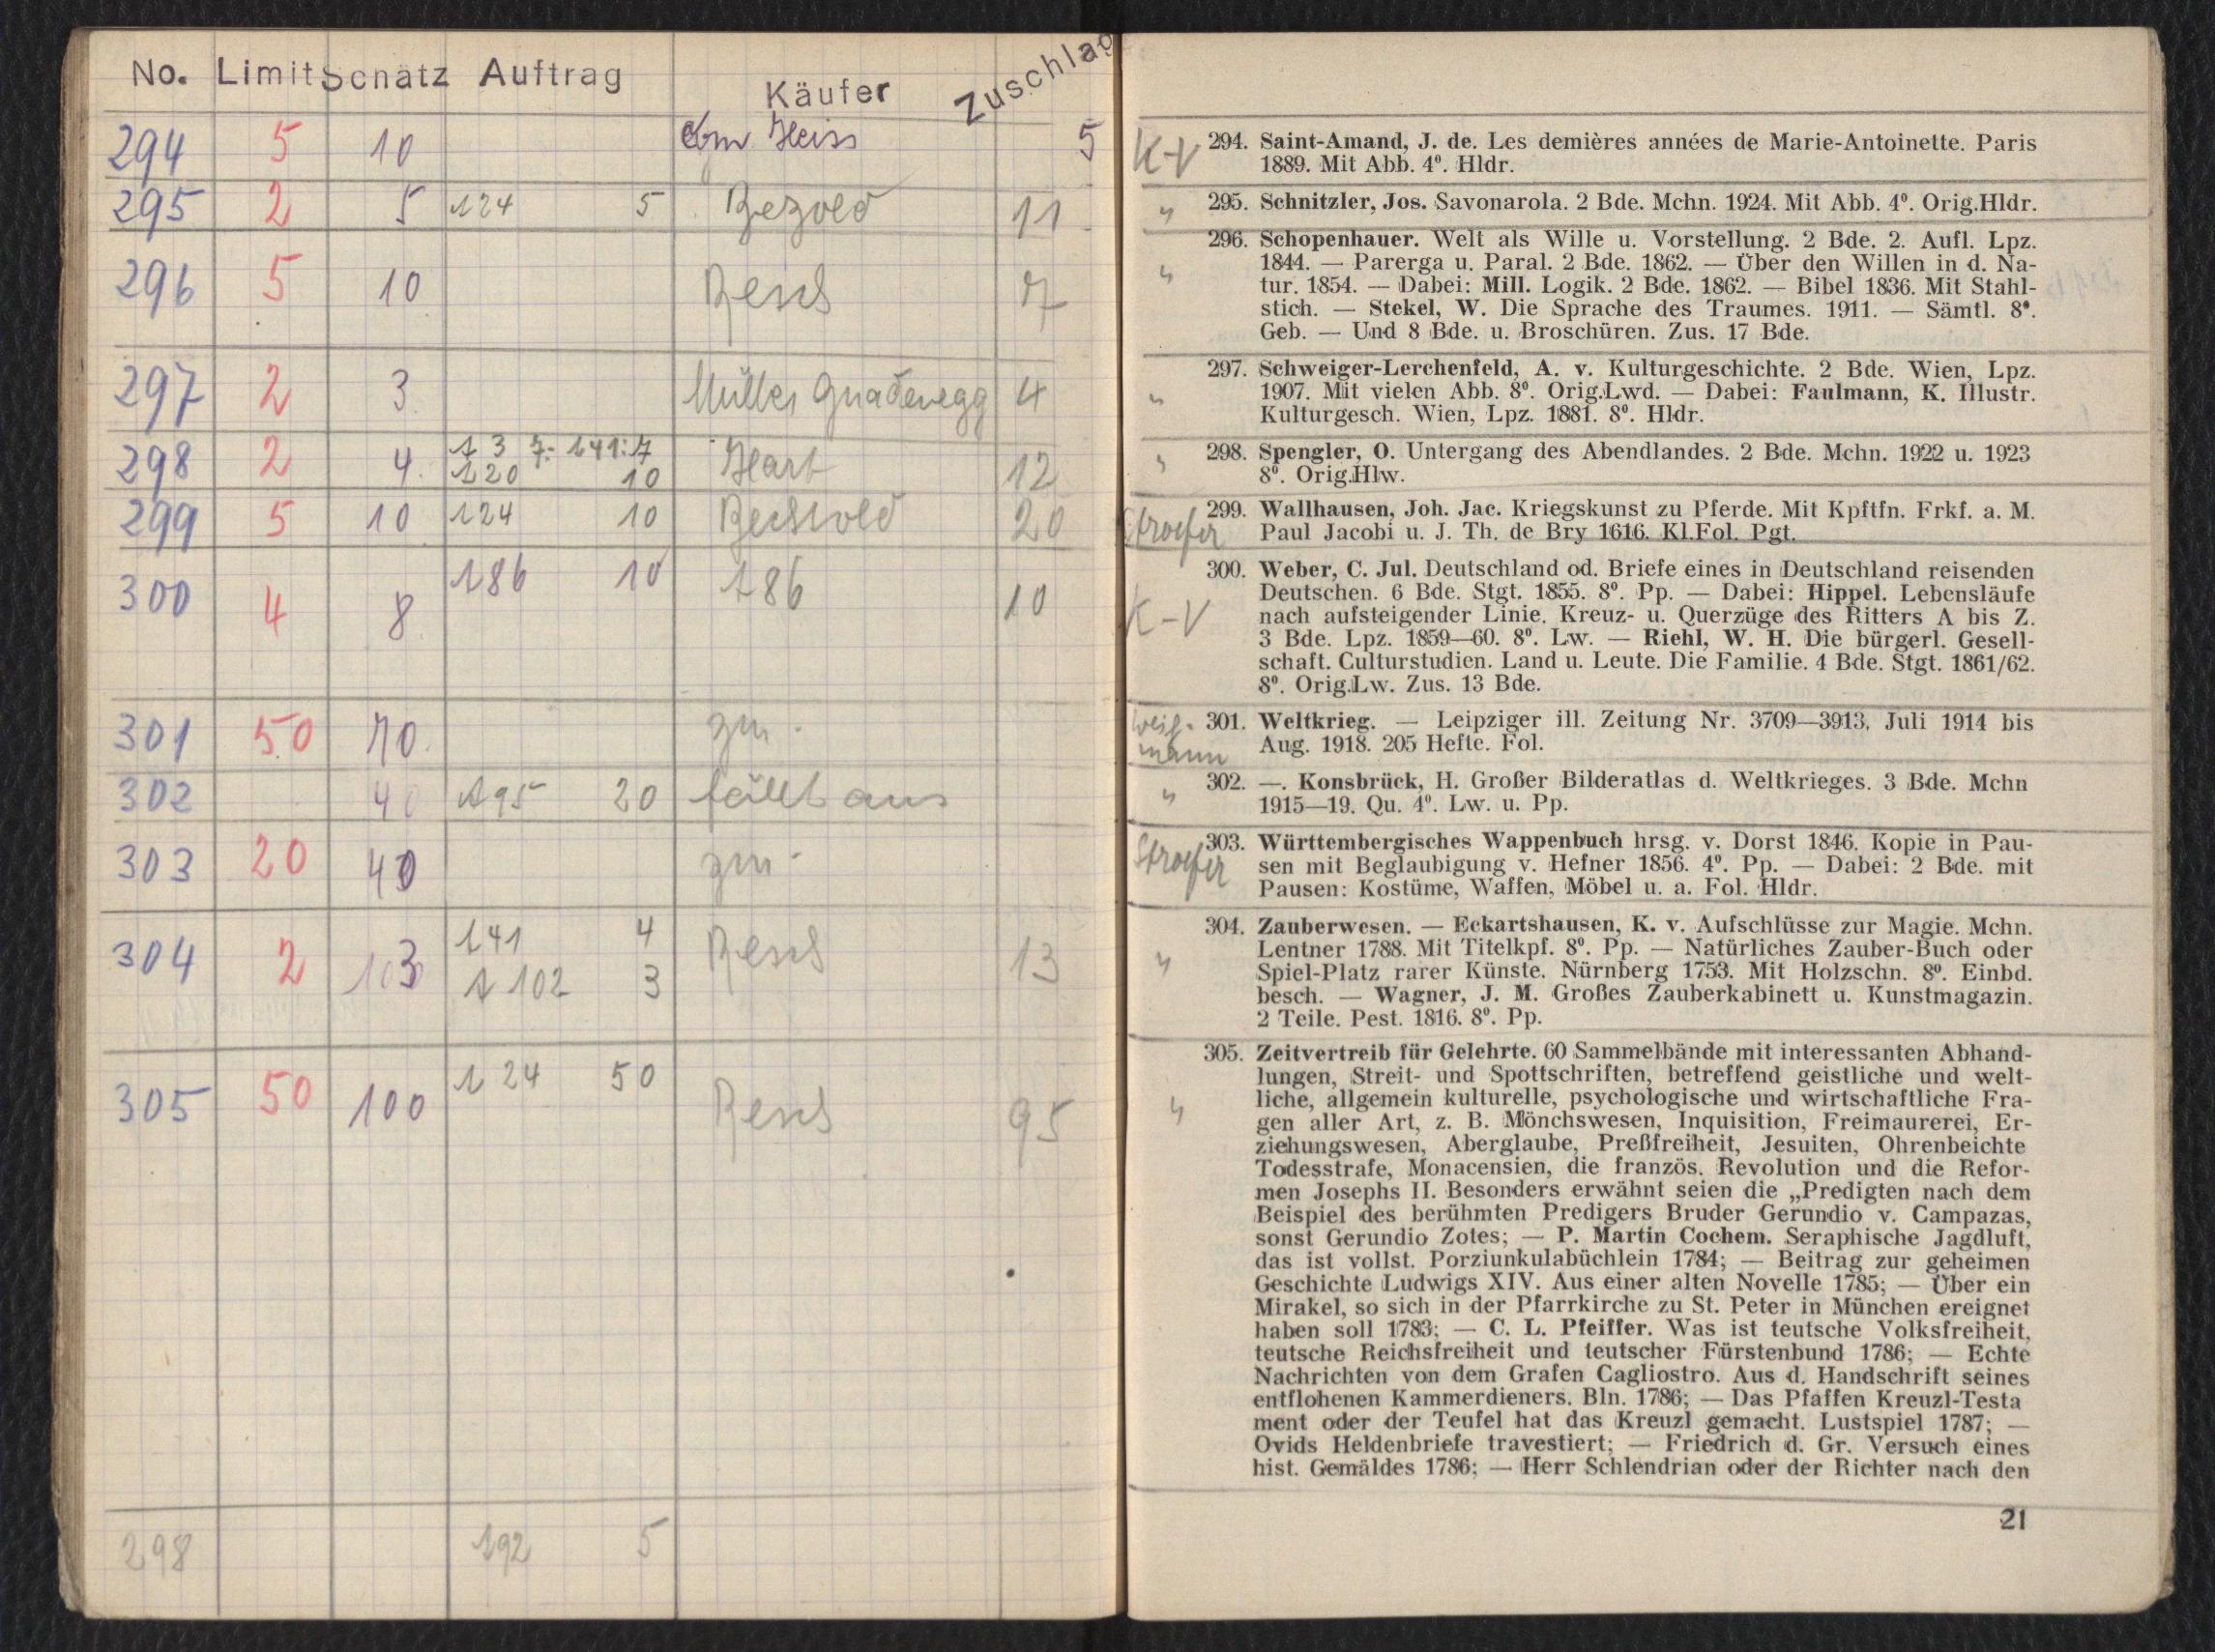 No. Limit Schätz Auftrag Käufer Zuschlag
294 5 10 5
295 2 5 124 5 Bezold 11
296 5 10 Resch 7
297 2 3 Müller Gnadenegg 4
298 2 4 13 7.- 141:7 Hart 12
120 10
299 5 10 124 10 20
300 4 8 186 10 186 10
301 50 70
302 40 195 20 fällt aus
303 20 40
304 2 141 4 Resch 13
102 3
305 50 100 124 50 Resch 95
298 192 5
K-V
294. Saint-Amand, J. de. Les demières années de Marie-Antoinette. Paris
1889. Mit Abb. 4⁰. Hldr.
" 295. Schnitzler, Jos. Savonarola. 2 Bde. Mchn. 1924. Mit Abb. 4⁰. Orig.Hldr.
296. Schopenhauer. Welt als Wille u. Vorstellung. 2 Bde. 2. Aufl. Lpz.
" 1844. — Parerga u. Paral. 2 Bde. 1862. — Über den Willen in d. Na-
tur. 1854. — Dabei: Mill. Logik. 2 Bde. 1862. — Bibel 1836. Mit Stahl-
stich. — Stekel, W. Die Sprache des Traumes. 1911. — Sämtl. 8⁰.
Geb. — Und 8 Bde. u. Broschüren. Zus. 17 Bde.
297. Schweiger-Lerchenfeld, A. v. Kulturgeschichte. 2 Bde. Wien, Lpz.
" 1907. Mit vielen Abb. 8⁰. Orig.Lwd. — Dabei: Faulmann, K. Illustr.
Kulturgesch. Wien, Lpz. 1881. 8⁰. Hldr.
" 298. Spengler, O. Untergang des Abendlandes. 2 Bde. Mchn. 1922 u. 1923
8⁰. Orig.Hlw.
299. Wallhausen, Joh. Jac. Kriegskunst zu Pferde. Mit Kpftfn. Frkf. a. M.
Stroefer Paul Jacobi u. J. Th. de Bry 1616. Kl.Fol. Pgt.
300. Weber, C. Jul. Deutschland od. Briefe eines in Deutschland reisenden
Deutschen. 6 Bde. Stgt. 1855. 8⁰. Pp. — Dabei: Hippel. Lebensläufe
K-V nach aufsteigender Linie. Kreuz- u. Querzüge des Ritters A bis Z.
3 Bde. Lpz. 1859—60. 8⁰. Lw. — Riehl, W. H. Die bürgerl. Gesell-
schaft. Culturstudien. Land u. Leute. Die Familie. 4 Bde. Stgt. 1861/62.
8⁰. Orig.Lw. Zus. 13 Bde.
Weiß- 301. Weltkrieg. — Leipziger ill. Zeitung Nr. 3709—3913, Juli 1914 bis
mann Aug. 1918. 205 Hefte. Fol.
" 302. —. Konsbrück, H. Großer Bilderatlas d. Weltkrieges. 3 Bde. Mchn
1915—19. Qu. 4⁰. Lw. u. Pp.
303. Württembergisches Wappenbuch hrsg. v. Dorst 1846. Kopie in Pau-
Stroefer sen mit Beglaubigung v. Hefner 1856. 4⁰. Pp. — Dabei: 2 Bde. mit
Pausen: Kostüme, Waffen, Möbel u. a. Fol. Hldr.
304. Zauberwesen. — Eckartshausen, K. v. Aufschlüsse zur Magie. Mchn.
" Lentner 1788. Mit Titelkpf. 8⁰. Pp. — Natürliches Zauber-Buch oder
Spiel-Platz rarer Künste. Nürnberg 1753. Mit Holzschn. 8⁰. Einbd.
besch. — Wagner, J. M. Großes Zauberkabinett u. Kunstmagazin.
2 Teile. Pest. 1816. 8⁰. Pp.
305. Zeitvertreib für Gelehrte. 60 Sammelbände mit interessanten Abhand-
lungen, Streit- und Spottschriften, betreffend geistliche und welt-
" liche, allgemein kulturelle, psychologische und wirtschaftliche Fra-
gen aller Art, z. B. Mönchswesen, Inquisition, Freimaurerei, Er-
ziehungswesen, Aberglaube, Preßfreiheit, Jesuiten, Ohrenbeichte
Todesstrafe, Monacensien, die französ. Revolution und die Refor-
men Josephs II. Besonders erwähnt seien die „Predigten nach dem
Beispiel des berühmten Predigers Bruder Gerundio v. Campazas,
sonst Gerundio Zotes; — P. Martin Cochem. Seraphische Jagdluft,
das ist vollst. Porziunkulabüchlein 1784; — Beitrag zur geheimen
Geschichte Ludwigs XIV. Aus einer alten Novelle 1785; — Über ein
Mirakel, so sich in der Pfarrkirche zu St. Peter in München ereignet
haben soll 1783; — C. L. Pfeiffer. Was ist teutsche Volksfreiheit,
teutsche Reichsfreiheit und teutscher Fürstenbund 1786; — Echte
Nachrichten von dem Grafen Cagliostro. Aus d. Handschrift seines
entflohenen Kammerdieners. Bln. 1786; — Das Pfaffen Kreuzl-Testa
ment oder der Teufel hat das Kreuzl gemacht. Lustspiel 1787; —
Ovids Heldenbriefe travestiert; — Friedrich d. Gr. Versuch eines
hist. Gemäldes 1786; — Herr Schlendrian oder der Richter nach den
21